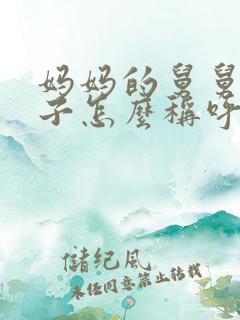 妈妈的舅舅
子怎麼稱呼
儲紀風
未经同意禁止转载